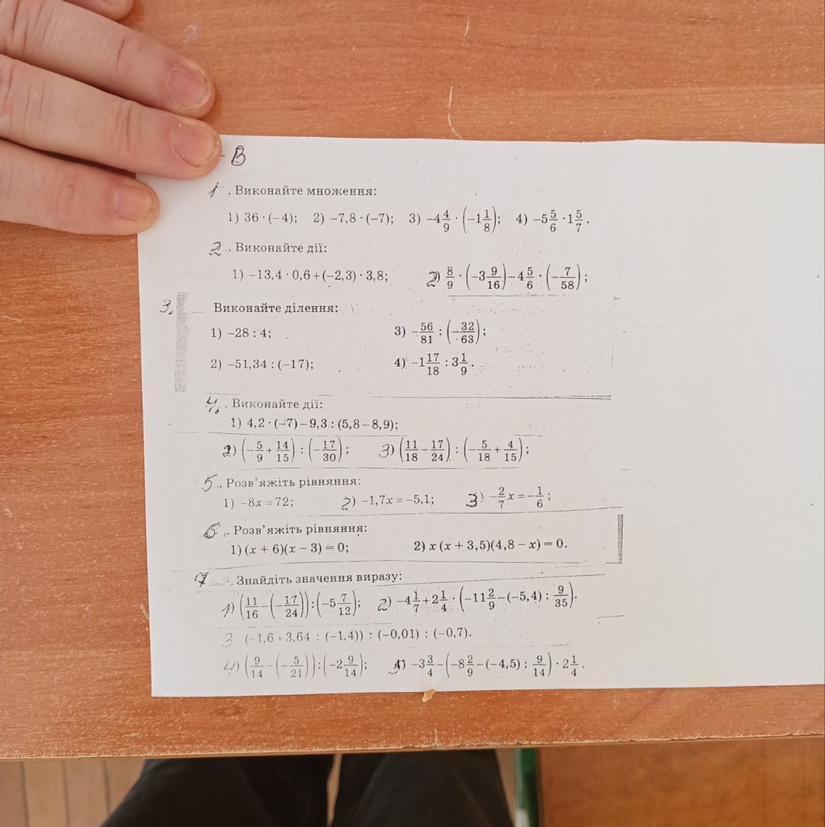 - В
1. Виконайте множення:
1) 36 · (−4); 2) −7,8 · (−7); 3) −4 4/9 · (−1 1/8); 4) −5 5/6 · 1 5/7.
2. Виконайте дії:
1) −13,4 · 0,6 + (−2,3) · 3,8; 2) 8/9 · (−3 9/16) − 4 5/6 · (−7/58);
3. Виконайте ділення:
1) −28 : 4; 3) −56/81 : (−32/63);
2) −51,34 : (−17); 4) −1 17/18 : 3 1/9.
4. Виконайте дії:
1) 4,2 · (−7) − 9,3 : (5,8 − 8,9);
2) (−5/9 + 14/15) : (−17/30); 3) (11/18 − 17/24) : (−5/18 + 4/15);
5. Розв'яжіть рівняння:
1) −8x = 72; 2) −1,7x = −5,1; 3) −2/7 x = −1/6;
6. Розв'яжіть рівняння:
1) (x + 6)(x − 3) = 0; 2) x (x + 3,5)(4,8 − x) = 0.
7. Знайдіть значення виразу:
1) (11/16 − (−17/24)) : (−5 7/12); 2) −4 1/7 + 2 1/4 · (−11 2/9 − (−5,4) : 9/35).
3 (−1,6 + 3,64 : (−1,4)) : (−0,01) : (−0,7).
4) (9/14 − (−5/21)) : (−2 9/14); −3 3/4 − (−8 2/9 − (−4,5) : 9/14) · 2 1/4.